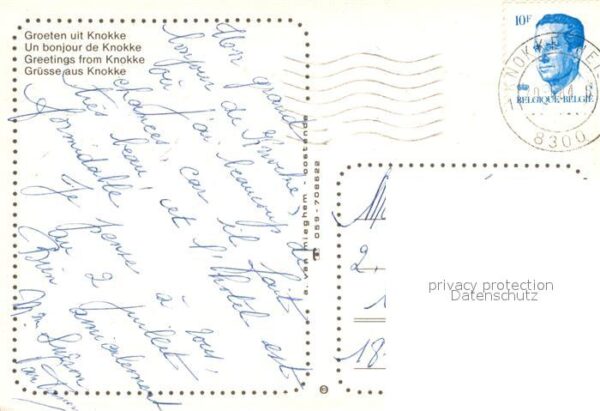 Groeten uit Knokke
Un bonjour de Knokke
Greetings from Knokke
Grüsse aus Knokke
Mon grand
bonjour de Knokke,
où j'ai beaucoup de
chances, car il fait
très beau et l'hôtel est
formidable
Je pense à vous
au 2 juillet
Bien amicalement
a. van mieghem - oostende
059-708622
10F
BELGIQUE-BELGIË
KNOKKE
8300
2.
1
18
privacy protection
Datenschutz